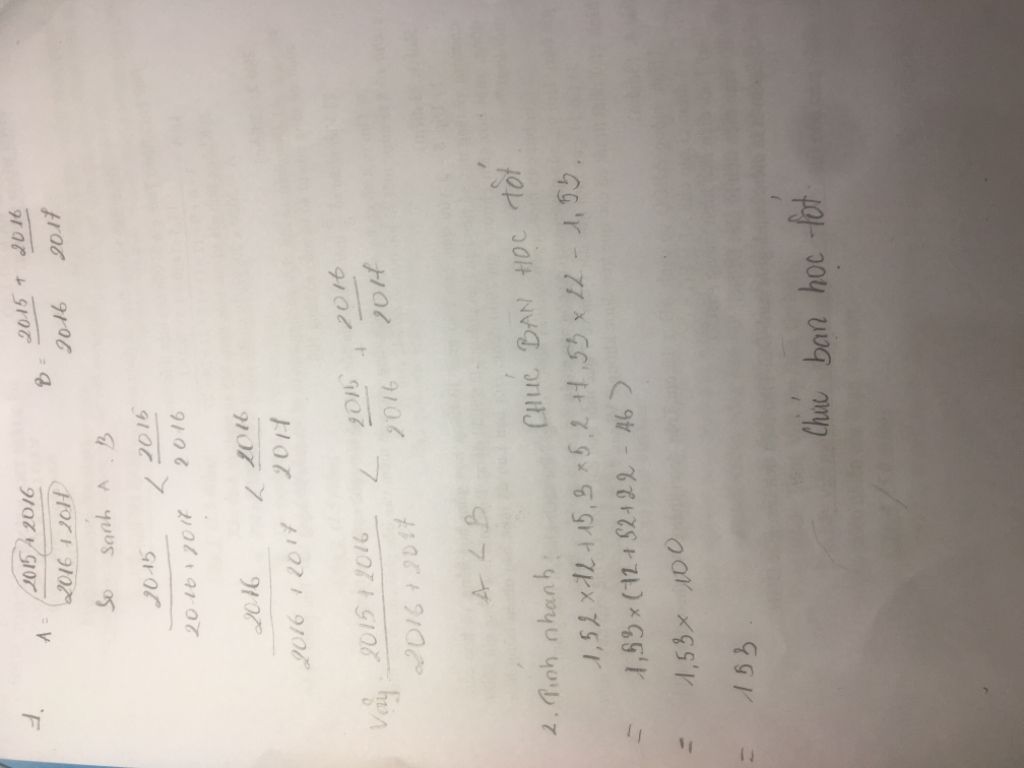 1. A = 2015+2016 / 2016+2017 B = 2015/2016 + 2016/2017
So sánh A . B
2015 / 2016+2017 < 2015/2016
2016 / 2016+2017 < 2016/2017
Vậy 2015+2016 / 2016+2017 < 2015/2016 + 2016/2017
A < B
CHÚC BẠN HỌC TỐT
2. Tính nhanh
1,52×12+15,3×5,2+1,53×22-1,53.
= 1,53×(12+52+22-
= 1,53×100
= 153
Chúc bạn học tốt.